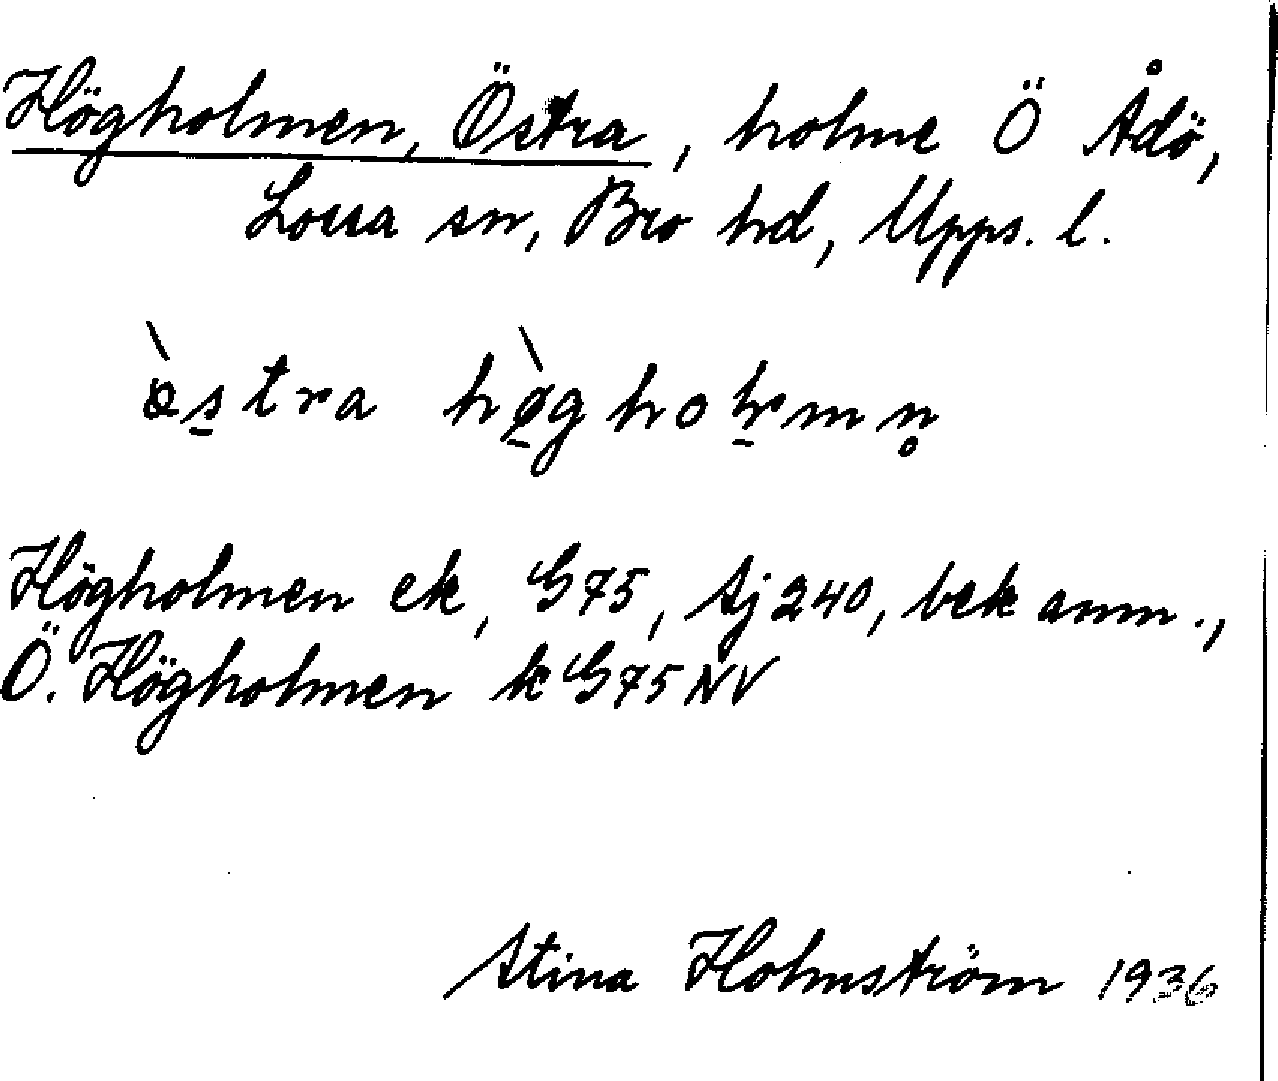 Högholmen, Östra, holme Ö Ådö,
Lossa sn, Bro hd, Upps. l.
östra høgholmn̥
Högholmen ek, G75, Sj240, bek anm.,
Ö. Högholmen k G75 NV
Stina Holmström 1936